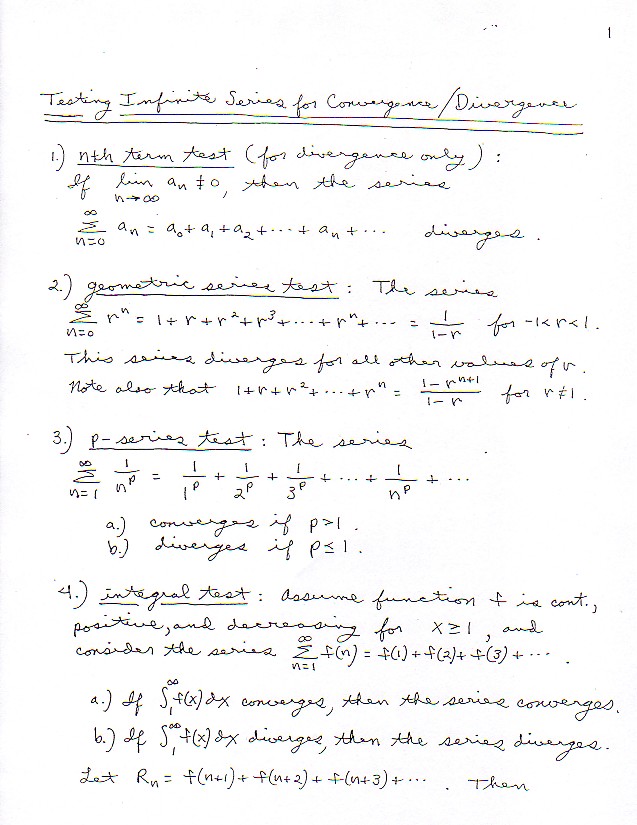 1
Testing Infinite Series for Convergence/Divergence
1.) nth term test (for divergence only) :
If lim_{n→∞} a_n ≠ 0, then the series
∑_{n=0}^{∞} a_n = a_0 + a_1 + a_2 + ··· + a_n + ··· diverges.
2.) geometric series test : The series
∑_{n=0}^{∞} r^n = 1 + r + r^2 + r^3 + ··· + r^n + ··· = 1/(1-r) for -1<r<1.
This series diverges for all other values of r.
Note also that 1+r+r^2+ ··· +r^n = (1-r^{n+1})/(1-r) for r≠1.
3.) p-series test : The series
∑_{n=1}^{∞} 1/n^p = 1/1^p + 1/2^p + 1/3^p + ··· + 1/n^p + ···
a.) converges if p>1.
b.) diverges if p≤1.
4.) integral test : Assume function f is cont.,
positive, and decreasing for x≥1, and
consider the series ∑_{n=1}^{∞} f(n) = f(1)+f(2)+f(3)+ ··· .
a.) If ∫_1^∞ f(x)dx converges, then the series converges.
b.) If ∫_1^∞ f(x)dx diverges, then the series diverges.
Let R_n = f(n+1)+f(n+2)+f(n+3)+ ··· . Then